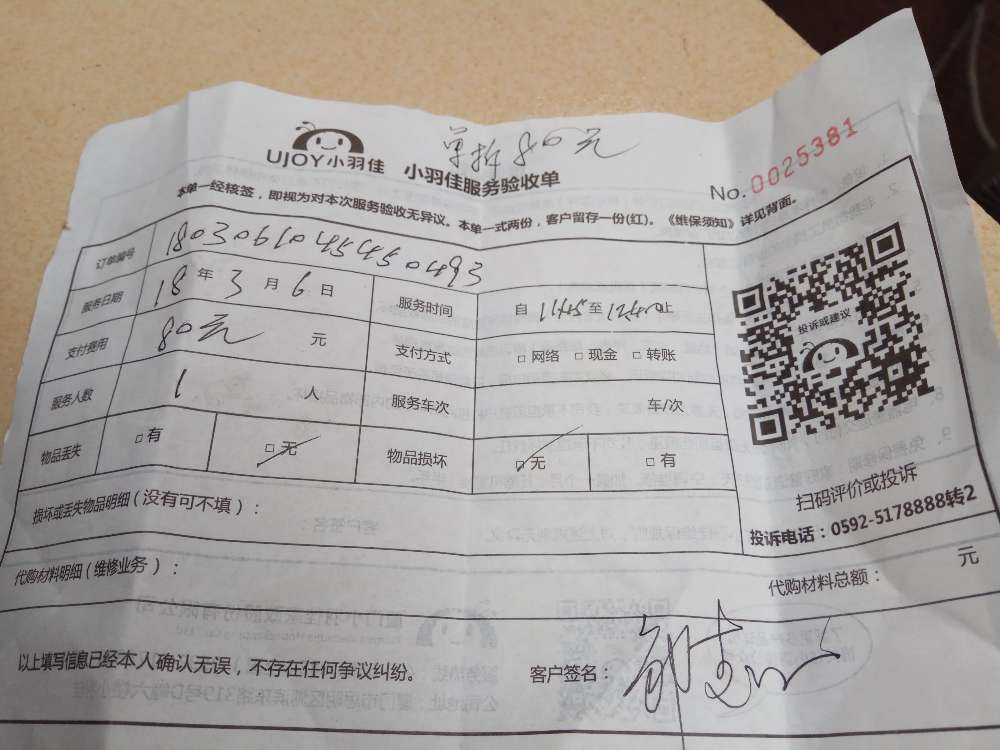 单拆80元
UJOY小羽佳 小羽佳服务验收单
No. 0025381
本单一经核签，即视为对本次服务验收无异议。本单一式两份，客户留存一份(红)。《维保须知》详见背面。
订单编号
服务日期 18 年 3 月 6 日 服务时间 自 11:45 至 12:40 止
支付费用 80元 元 支付方式 □ 网络 □ 现金 □ 转账
服务人数 1 人 服务车次 车/次
物品丢失 □ 有 □ 无 物品损坏 □ 无 □ 有
投诉或建议
扫码评价或投诉
投诉电话：0592-5178888转2
损坏或丢失物品明细（没有可不填）：
代购材料明细（维修业务）： 代购材料总额： 元
以上填写信息已经本人确认无误，不存在任何争议纠纷。 客户签名：